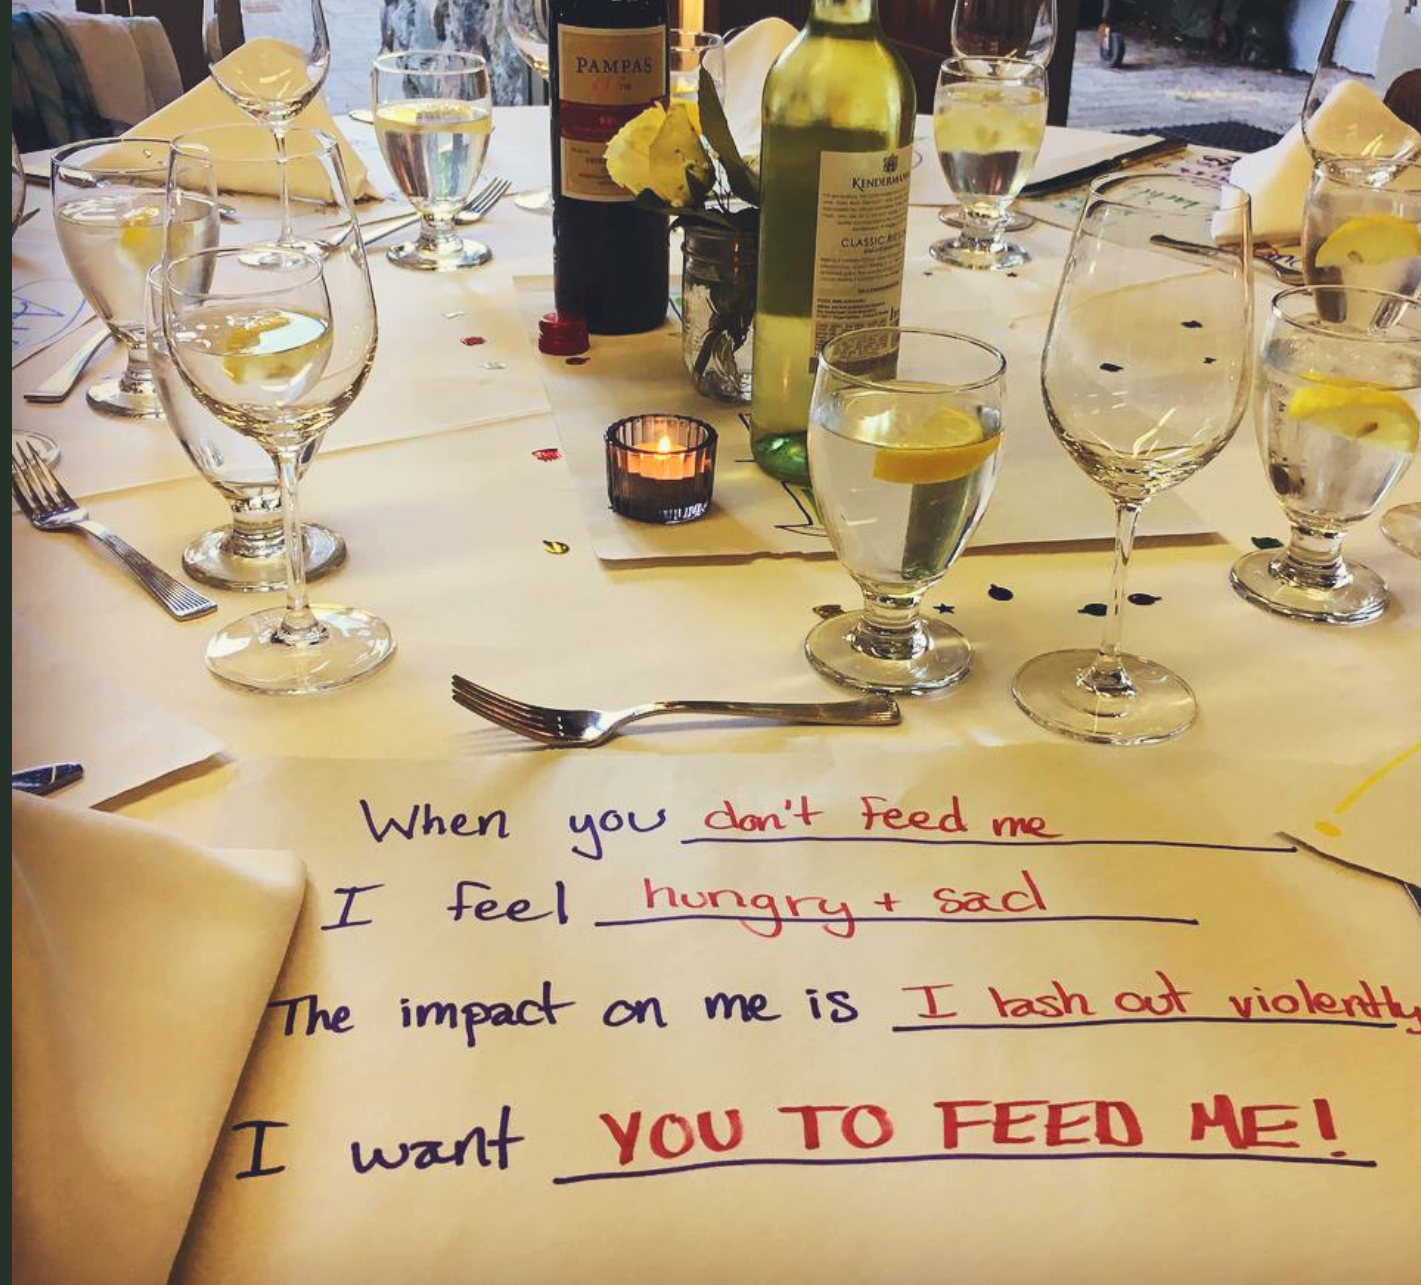 PAMPAS
KENDERMANN
CLASSIC
When you don't feed me
I feel hungry + sad
The impact on me is I lash out violently
I want YOU TO FEED ME!